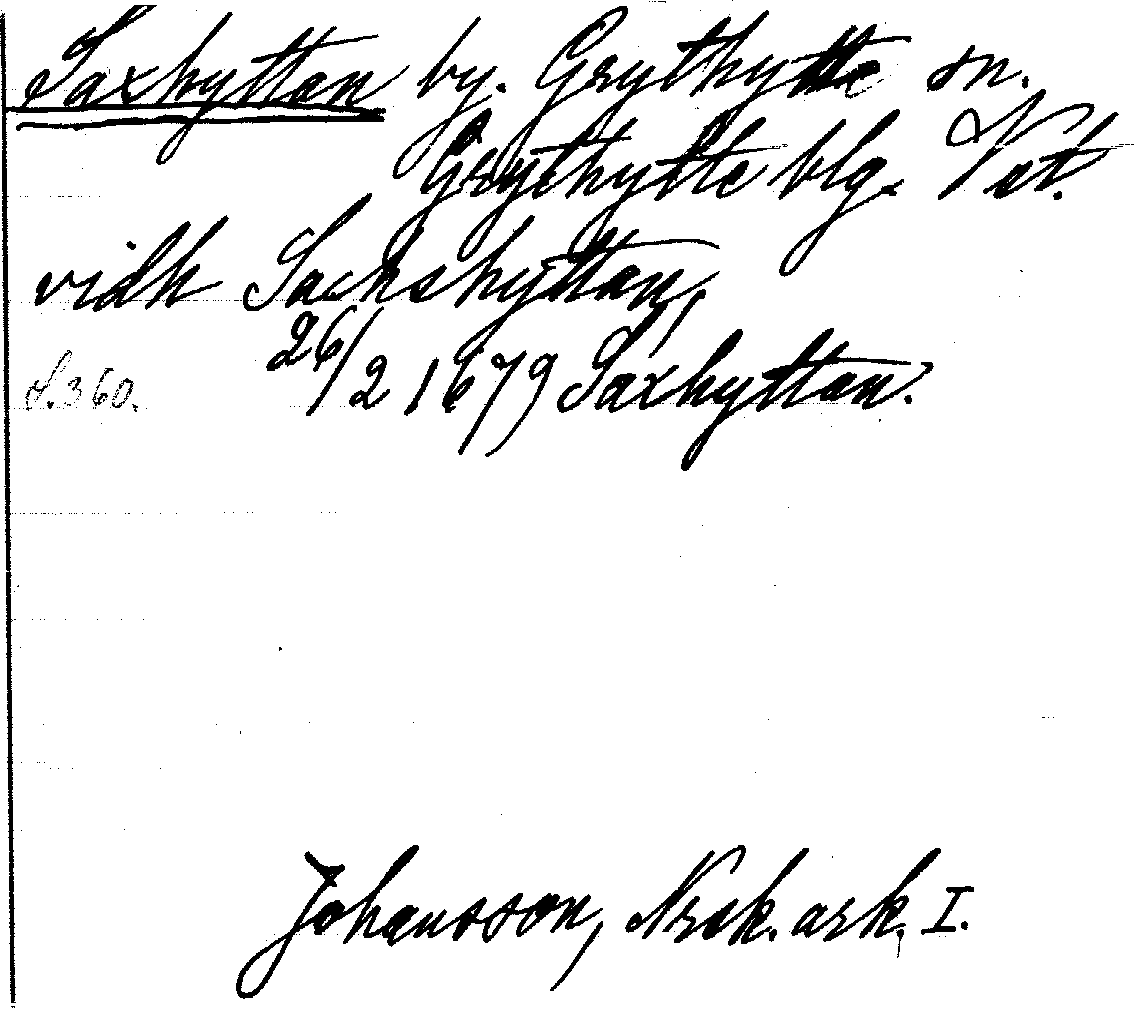 Saxhyttan by. Grythytte sn.
Grythytte blg. Vst.
vidh Sachshyttan,
26/2 1679 Saxhyttan.
S. 360.
Johansson, Nrsk. ark. I.